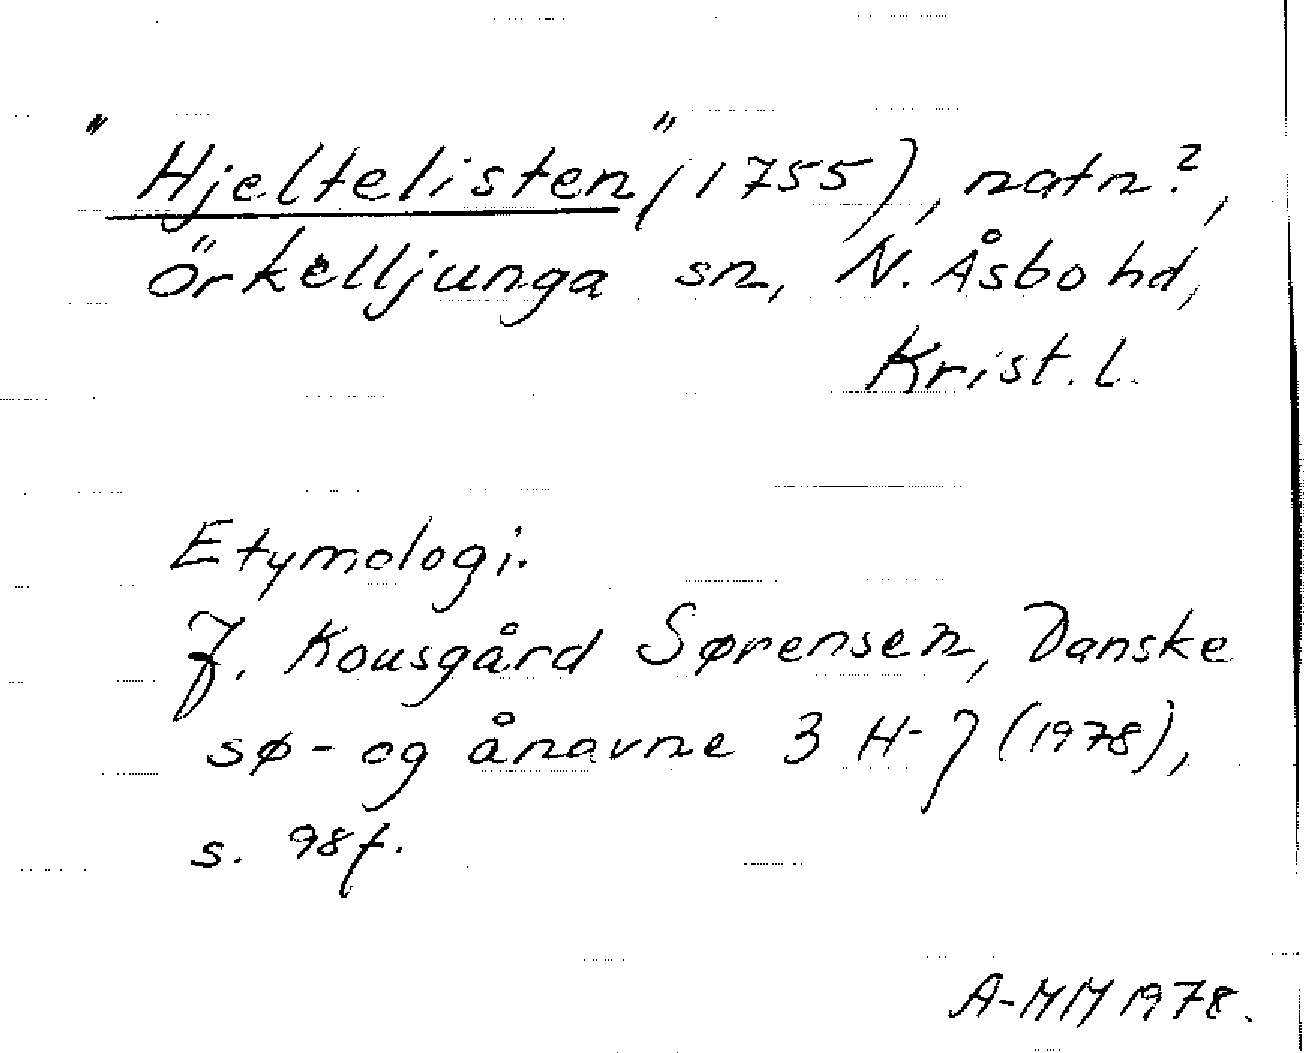 "Hjeltelisten" (1755), natn?,
Örkelljunga sn, N. Åsbo hd,
Krist. l.
Etymologi.
J. Kousgård Sørensen, Danske
sø- og ånavne 3 H-J (1978),
s. 98f.
A-MM 1978.